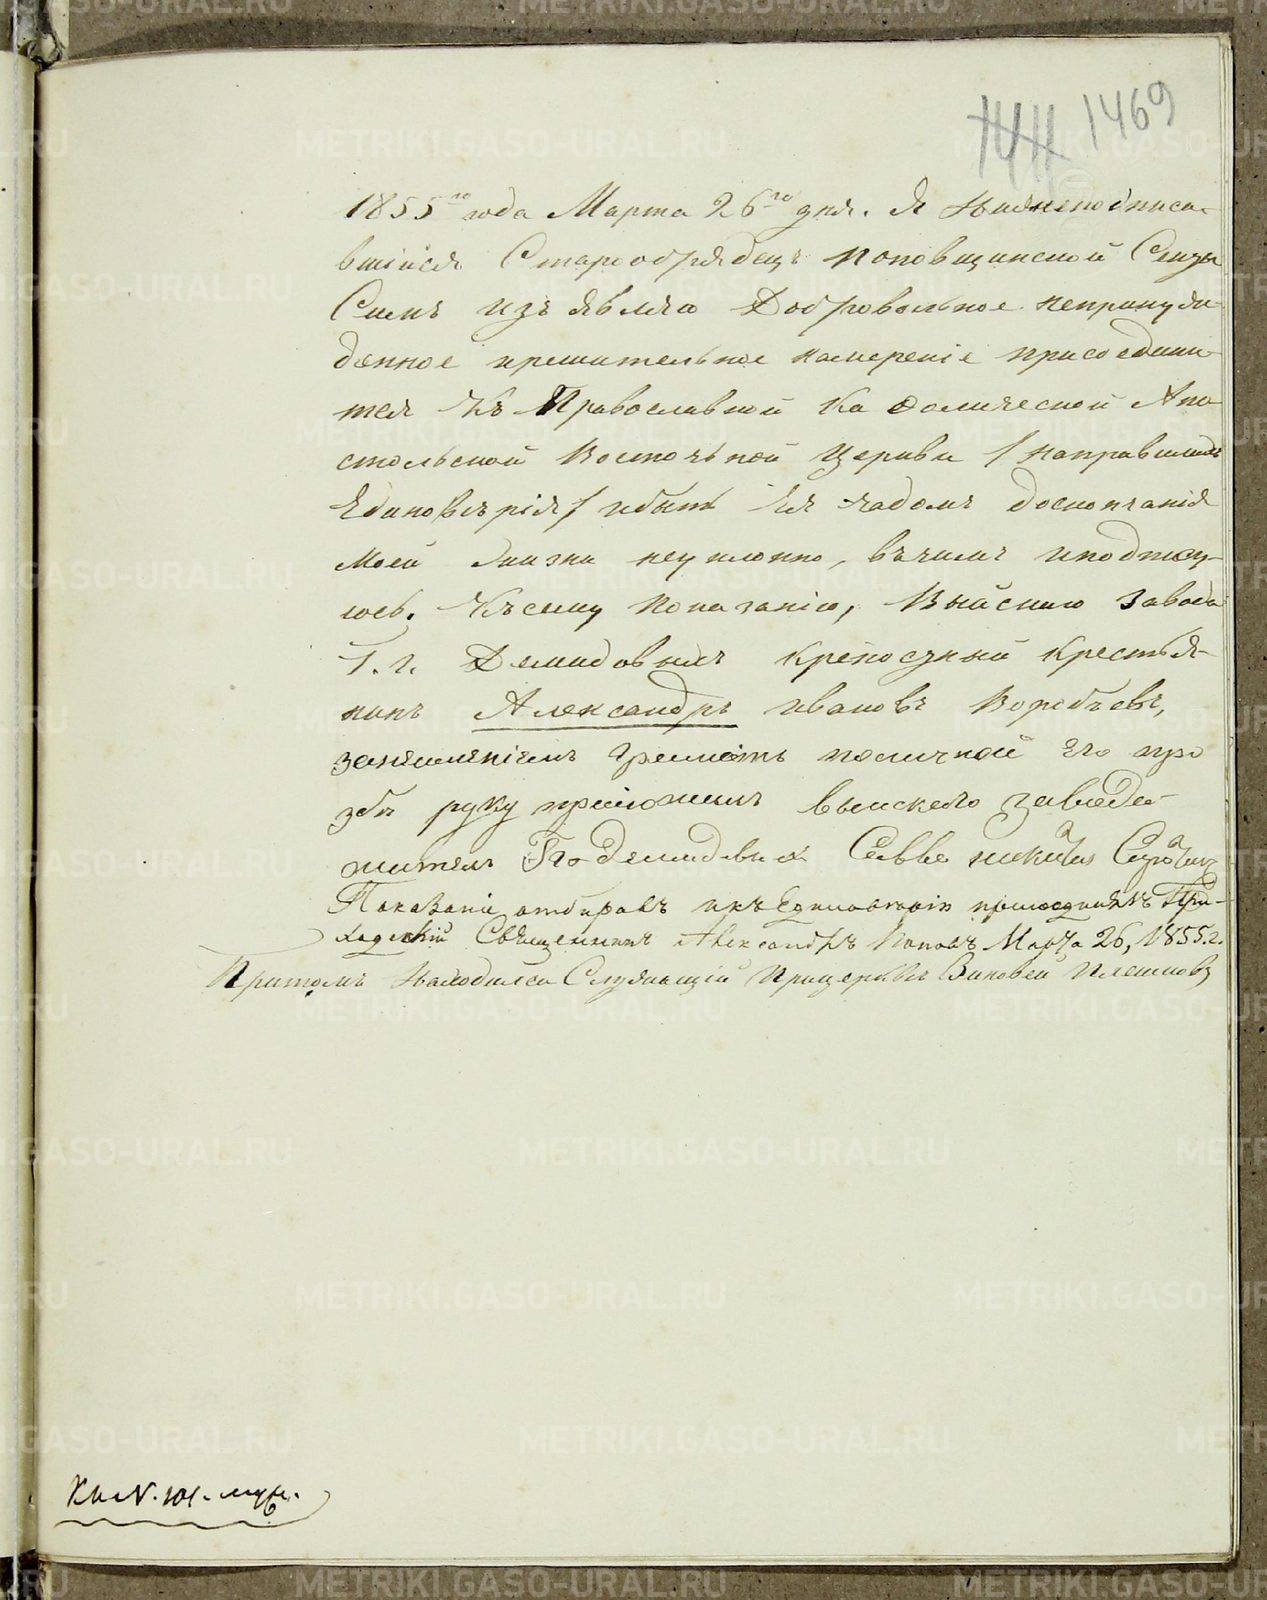 1469
1855го года Марта 26го дня. Я нижеподписа-
вшійся Старообрядецъ поповщинской Секты
Симъ изъявляю Добровольное непринуж-
денное ирешительное намереніе присоедини-
тся Къ Православной Каѳолической Апо-
стольской Восточьной Церкви / направилахъ
Единоверія / ибыть Ея чадомъ доскончанія
Моей Жизни неуклонно, въчемъ иподпису-
юсь. Късему показанію, Выйскаго завода
Г.г. Демидовыхъ крепосный крестья-
нинъ Александръ ивановъ Воробьевъ,
занеименіемъ грамоты поличной его про
збе руку приложилъ выискаго завода
жителъ Гго демидовых Савва никитин
Показаніе отбиралъ икъ Единоверію присоединялъ При-
ходскій Священникъ Александръ Поповъ Марта 26, 1855.г.
Притомъ находился Служащій Прицеркве Зиновей Плешковъ
Къ N. 101. муж.